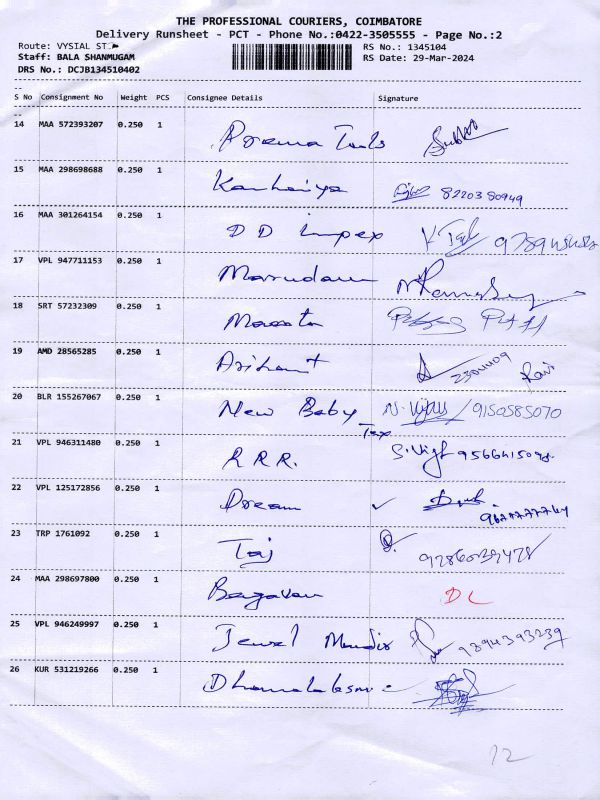 THE PROFESSIONAL COURIERS, COIMBATORE
Delivery Runsheet - PCT - Phone No.:0422-3505555 - Page No.:2
Route: VYSIAL ST RS No.: 1345104
Staff: BALA SHANMUGAM RS Date: 29-Mar-2024
DRS No.: DCJB134510402
S No Consignment No Weight PCS Consignee Details Signature
14 MAA 572393207 0.250 1
15 MAA 298698688 0.250 1 Kanhaiya 8220380949
16 MAA 301264154 0.250 1 D D impex
17 VPL 947711153 0.250 1
18 SRT 57232309 0.250 1
19 AMD 28565285 0.250 1 Arihant Ravi
20 BLR 155267067 0.250 1 New Baby Tex 9150585070
21 VPL 946311480 0.250 1 R.R.R.
22 VPL 125172856 0.250 1 Dream
23 TRP 1761092 0.250 1 Taj
24 MAA 298697800 0.250 1 DL
25 VPL 946249997 0.250 1 Jewel 9894393239
26 KUR 531219266 0.250 1
12